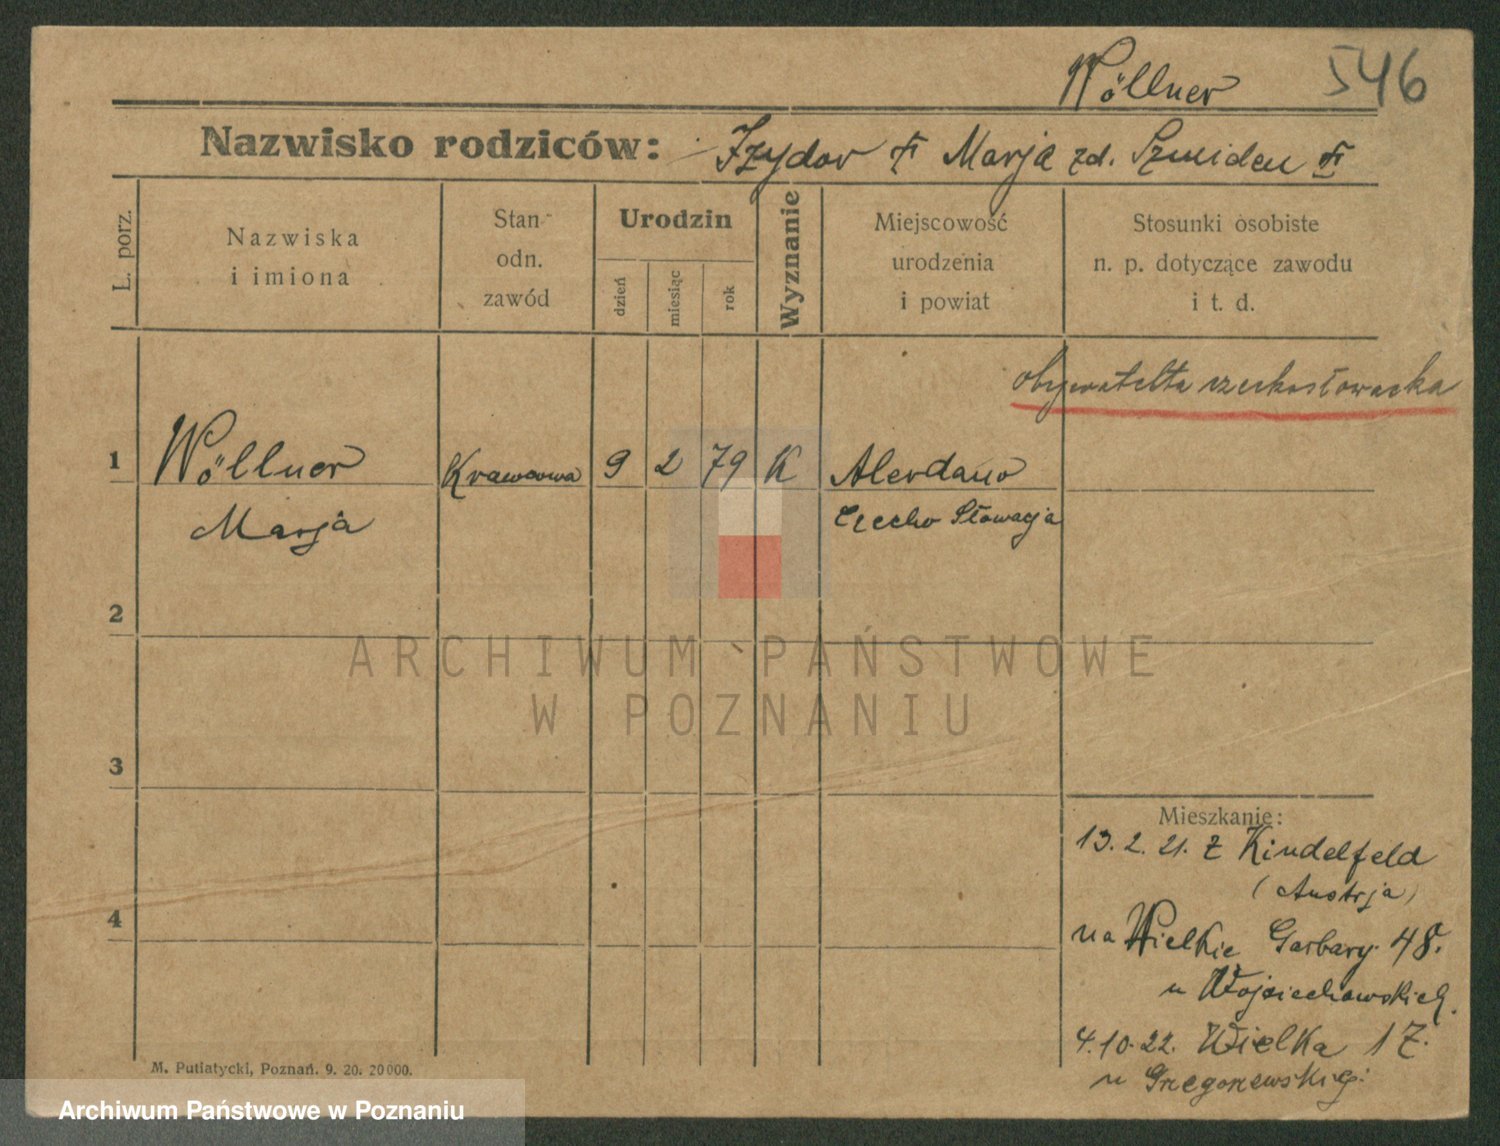 Wöllner 546
Nazwisko rodziców: Izydor Marja zd. Szmiden
L. porz.
Nazwiska
i imiona
Stan
odn.
zawód
Urodzin
dzień
miesiąc
rok
Wyznanie
Miejscowość
urodzenia
i powiat
Stosunki osobiste
n. p. dotyczące zawodu
i t. d.
obywatelka czechosłowacka
1 Wöllner Krawcowa 9 2 79 K Alerdano
Marja Czecho Słowacja
2
3
4
Mieszkanie:
13.2.21. z Kindelfeld
(Austrja)
na Wielkie Garbary 48.
u Wojciechowskich.
4.10.22. Wielka 17.
u Grzegorzewskiej.
M. Putiatycki, Poznań. 9. 20. 20000.
ARCHIWUM PAŃSTWOWE
W POZNANIU
Archiwum Państwowe w Poznaniu